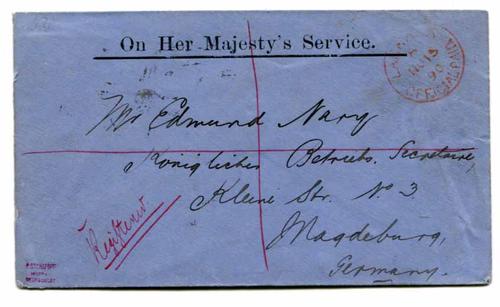 On Her Majesty's Service.
OFFICIAL PAID
Mr Edmund Nary
Königlicher Betriebs. Secretaire,
Kleine Str. No 3.
Magdeburg,
Germany.
Registered